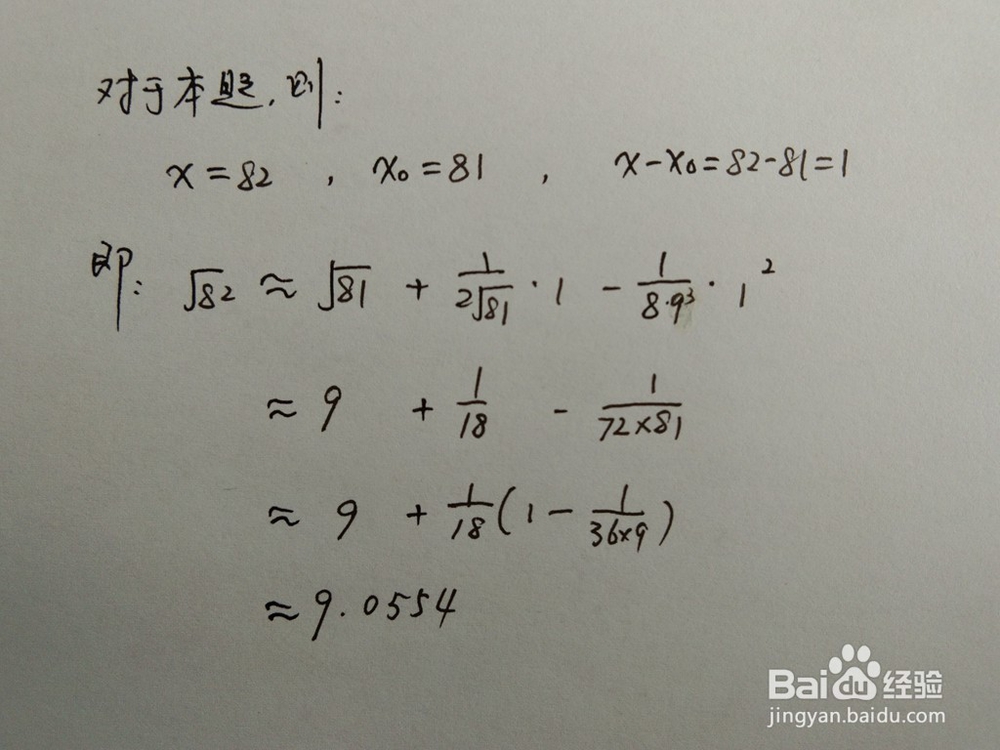 对于本题,则:
x=82 , x₀=81 , x-x₀=82-81=1
即: √82 ≈ √81 + 1/(2√81) · 1 - 1/(8·9³) · 1²
≈ 9 + 1/18 - 1/(72×81)
≈ 9 + 1/18(1 - 1/(36×9))
≈ 9.0554
Baidu经验
jingyan.baidu.com